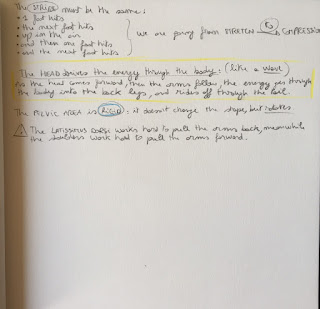 The STRIDE must be the same:
• 1 foot hits
• the next foot hits
• up in the air
• and then one foot hits
• and the next foot hits
we are going from STRETCH to COMPRESSION
The HEAD drives the energy through the body: (like a wave)
as the head comes forward, then the arms follow, the energy goes through
the body into the back legs, and rides off through the tail.
The PELVIC AREA is RIGID: it doesn't change the shape, but rotates
! The LATISSIMUS DORSI works hard to pull the arms back, meanwhile
the shoulders work hard to pull the arms forward.